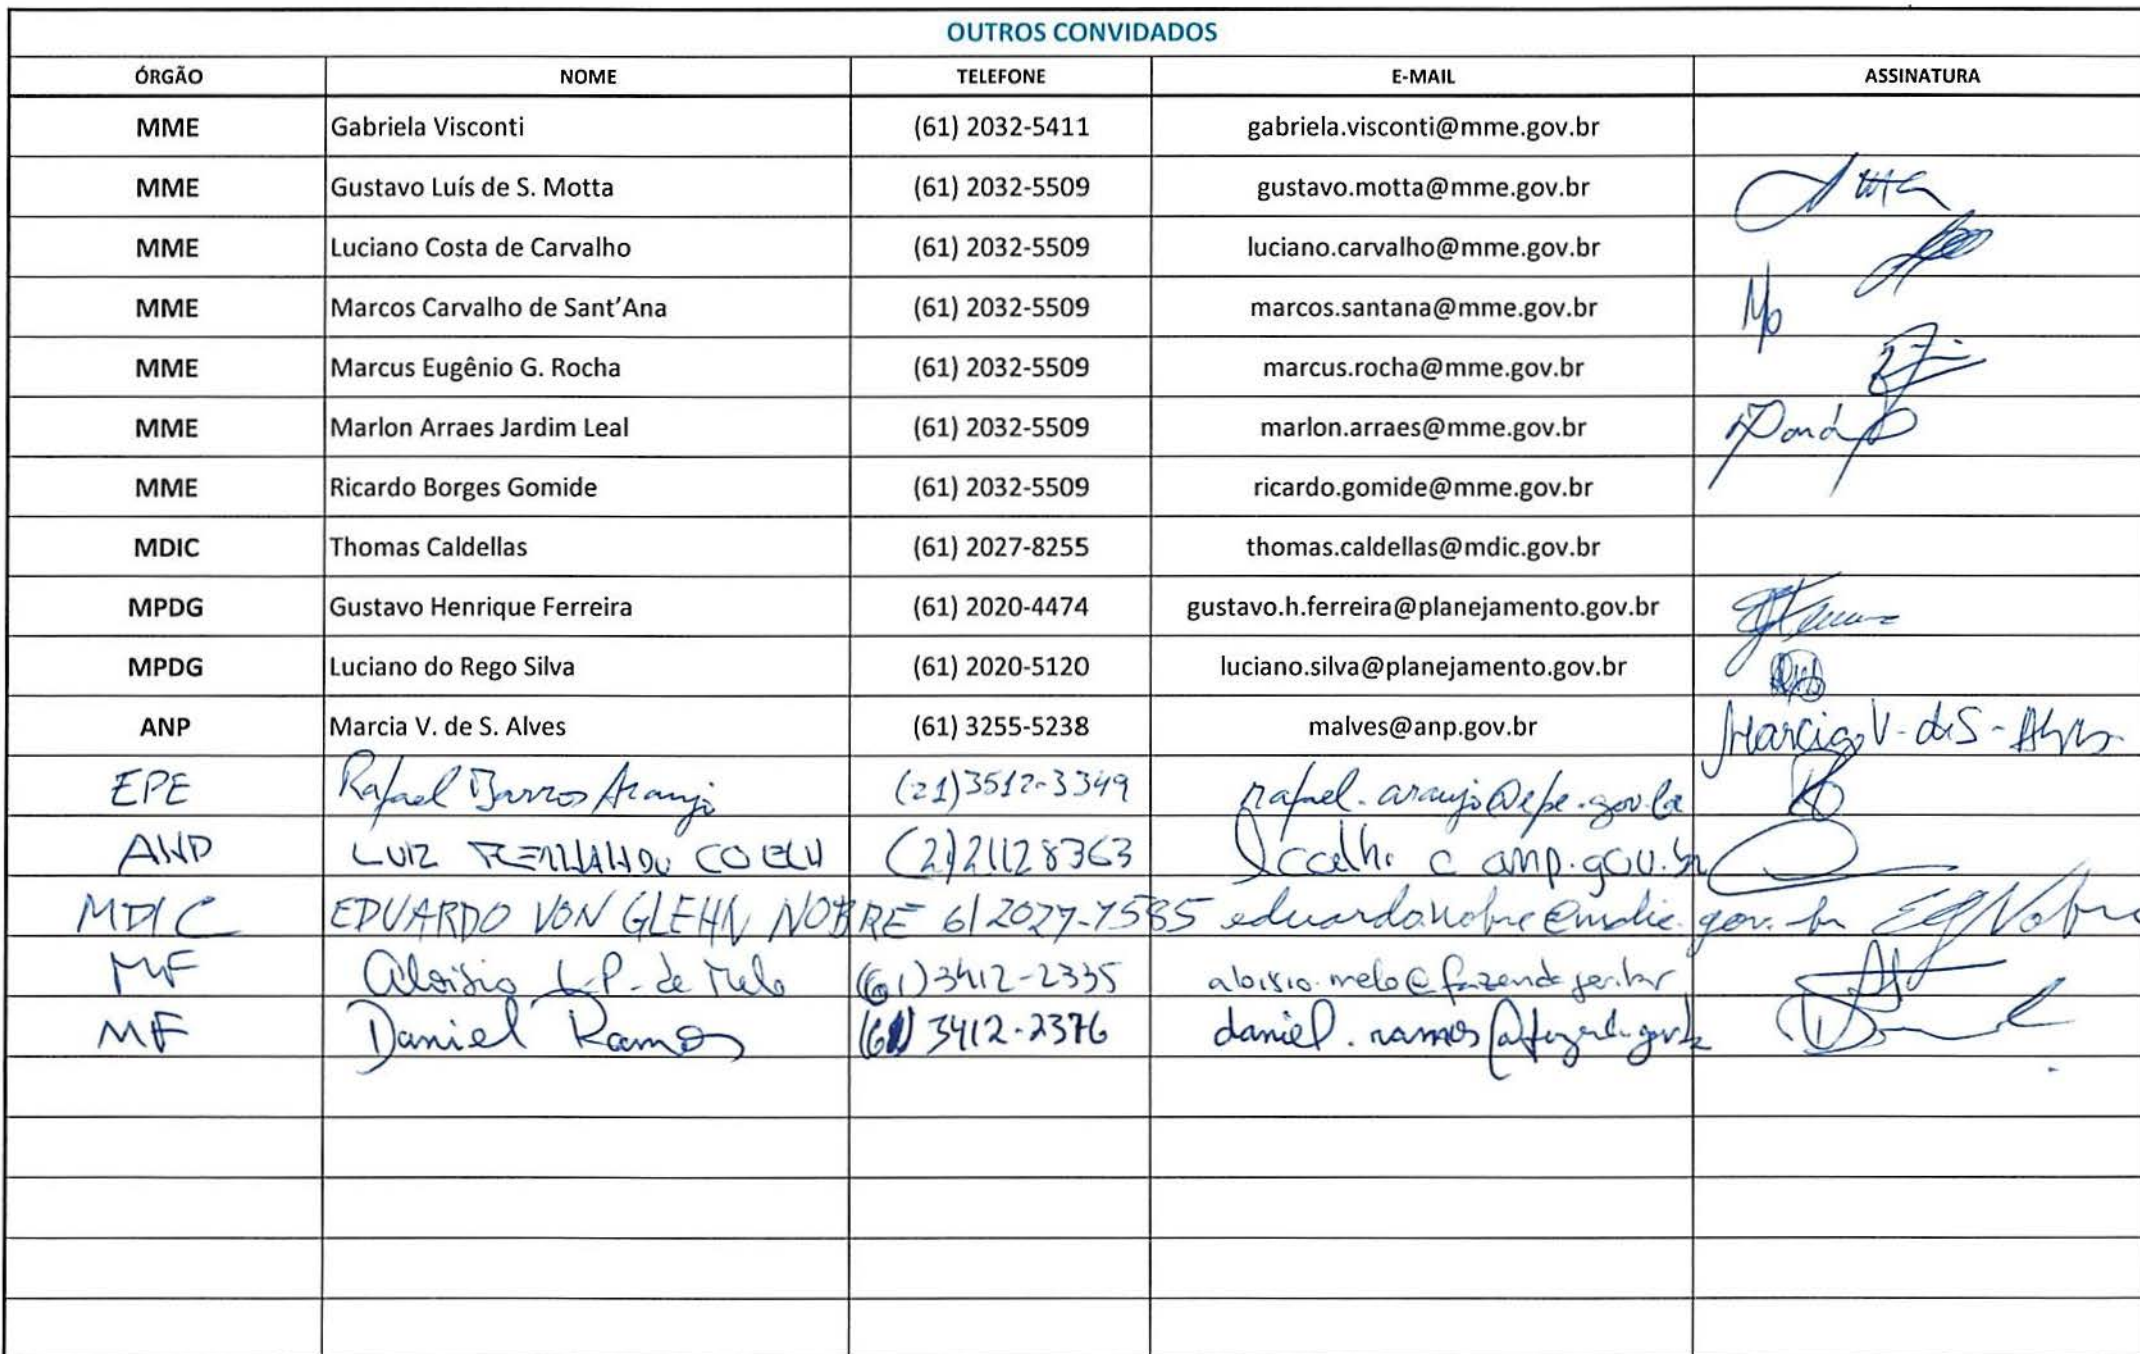 OUTROS CONVIDADOS
ÓRGÃO NOME TELEFONE E-MAIL ASSINATURA
MME Gabriela Visconti (61) 2032-5411 gabriela.visconti@mme.gov.br
MME Gustavo Luís de S. Motta (61) 2032-5509 gustavo.motta@mme.gov.br
MME Luciano Costa de Carvalho (61) 2032-5509 luciano.carvalho@mme.gov.br
MME Marcos Carvalho de Sant'Ana (61) 2032-5509 marcos.santana@mme.gov.br
MME Marcus Eugênio G. Rocha (61) 2032-5509 marcus.rocha@mme.gov.br
MME Marlon Arraes Jardim Leal (61) 2032-5509 marlon.arraes@mme.gov.br
MME Ricardo Borges Gomide (61) 2032-5509 ricardo.gomide@mme.gov.br
MDIC Thomas Caldellas (61) 2027-8255 thomas.caldellas@mdic.gov.br
MPDG Gustavo Henrique Ferreira (61) 2020-4474 gustavo.h.ferreira@planejamento.gov.br
MPDG Luciano do Rego Silva (61) 2020-5120 luciano.silva@planejamento.gov.br
ANP Marcia V. de S. Alves (61) 3255-5238 malves@anp.gov.br Marcia V. de S. Alves
EPE Rafael Barros Araujo (21)3512-3349 rafael.araujo@epe.gov.br
ANP LUIZ FERNANDO COELH (21)21128363 lcoelho@anp.gov.br
MDIC EDUARDO VON GLEHN NOBRE 61 2027-7585 eduardo.nobre@mdic.gov.br EG Nobre
MF Aloisio L.P. de Melo (61)3412-2335 aloisio.melo@fazenda.gov.br
MF Daniel Ramos (61) 3412-2376 daniel.ramos@fazenda.gov.br